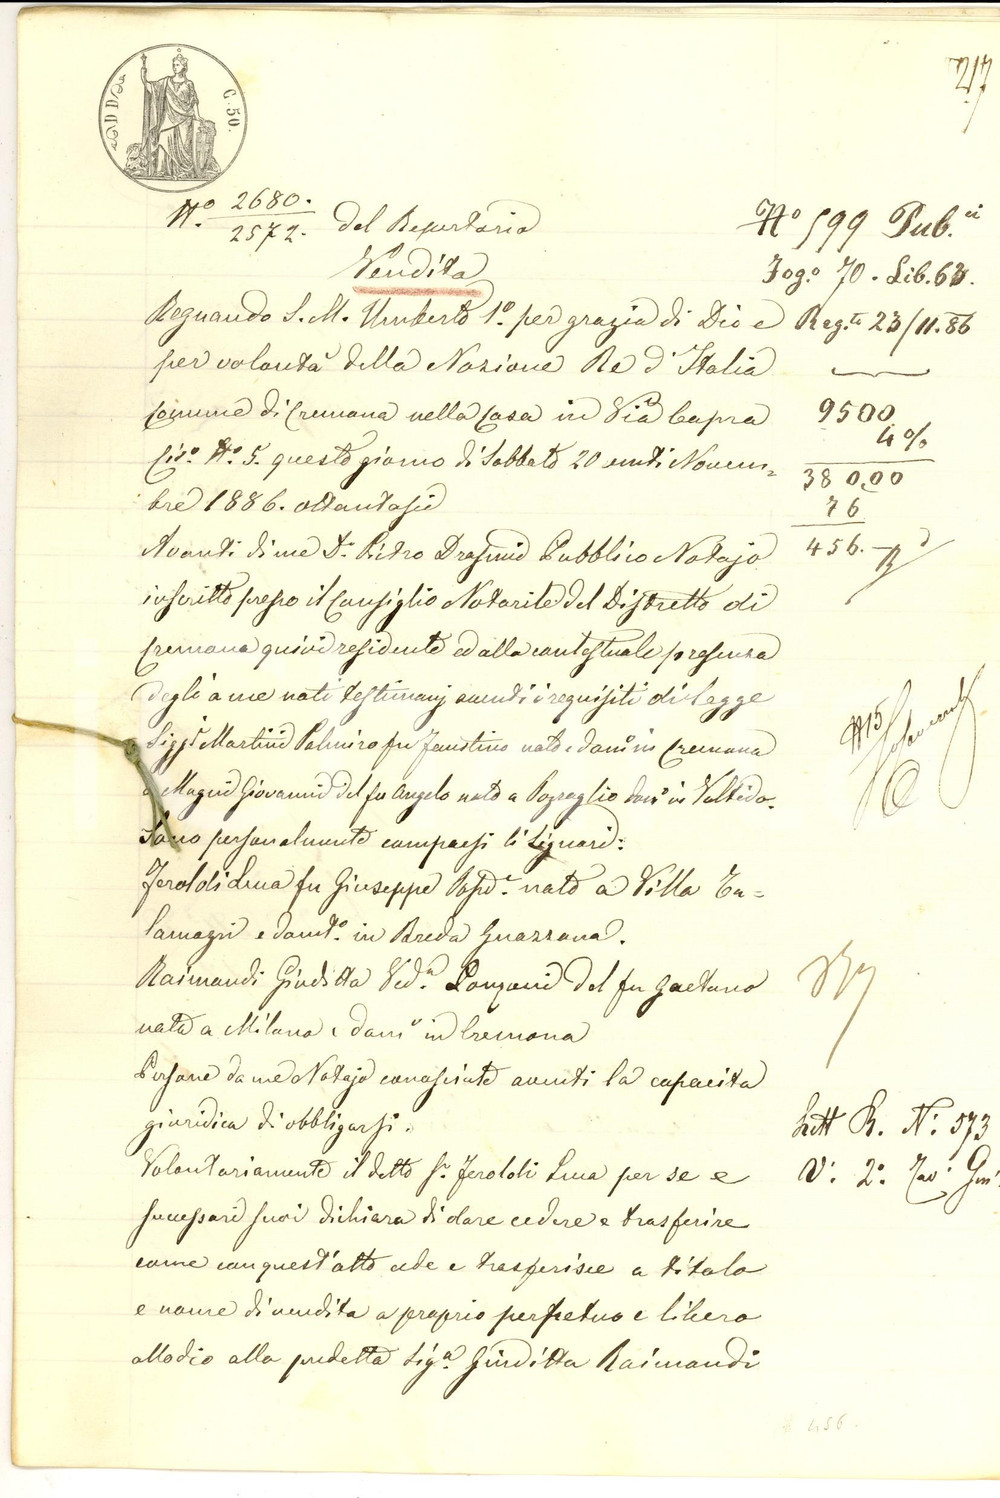 C. 50.
N.° 2680. / 2572. del Repertorio
Vendita
Regnando S. M. Umberto 1°. per grazia di Dio e
per volontà della Nazione Re d'Italia
Comune di Cremona nella Casa in Via Capra
Civ.° N.° 5. questo giorno di Sabbato 20 venti Novem=
bre 1886. ottantasei
Avanti di me D.r Pietro Pubblico Notajo
inscritto presso il Consiglio Notarile del Distretto di
Cremona quivi residente ed alla contestuale presenza
degli a me noti testimonj aventi i requisiti di Legge
Sigg.i Martini Palmiro fu Faustino nato e dom.° in Cremona
e Magni Giovanni del fu Angelo nato a dom.° in
personalmente comparsi li Signori:
Feroldi Luca fu Giuseppe nato a Villa Ta=
lamazzi e domt.° in Breda Guazzona.
Raimondi Giuditta Ved.a Longoni del fu Gaetano
nata a Milano e dom.° in Cremona
Persone da me Notajo conosciute aventi la capacita
giuridica di obbligarsi.
Volontariamente il detto S.r Feroldi Luca per se e
successori suoi dichiara di dare cedere e trasferire
come con quest'atto cede e trasferisce a titolo
e nome di vendita a proprio perpetuo e libero
allodio alla predetta Sig.a Giuditta Raimondi
N° 599 Pub.ci
Fog.° 70. Lib. 63.
Reg.to 23/11.86
9500
4%
380,00
76
456.
N 15
Lett R. N.° 573
V. 2°.
456.